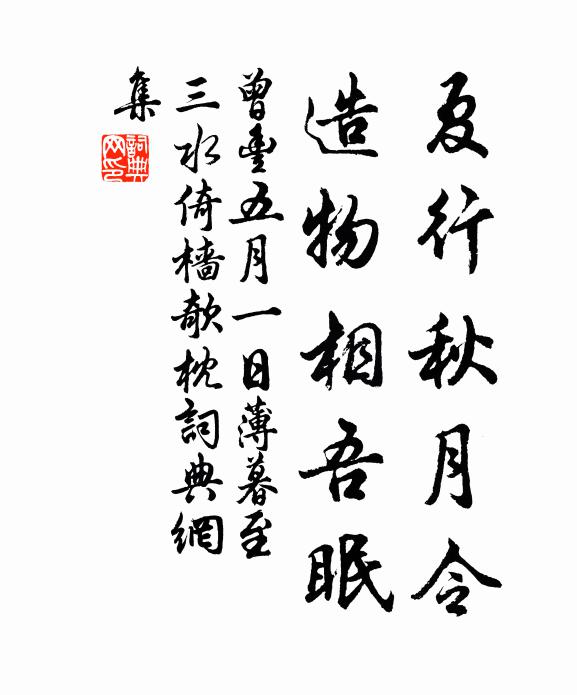 夏行秋月令
造物相吾眠
曾豐五月一日薄暮至
三水倚檣欹枕詞典網
集
詞典
网印